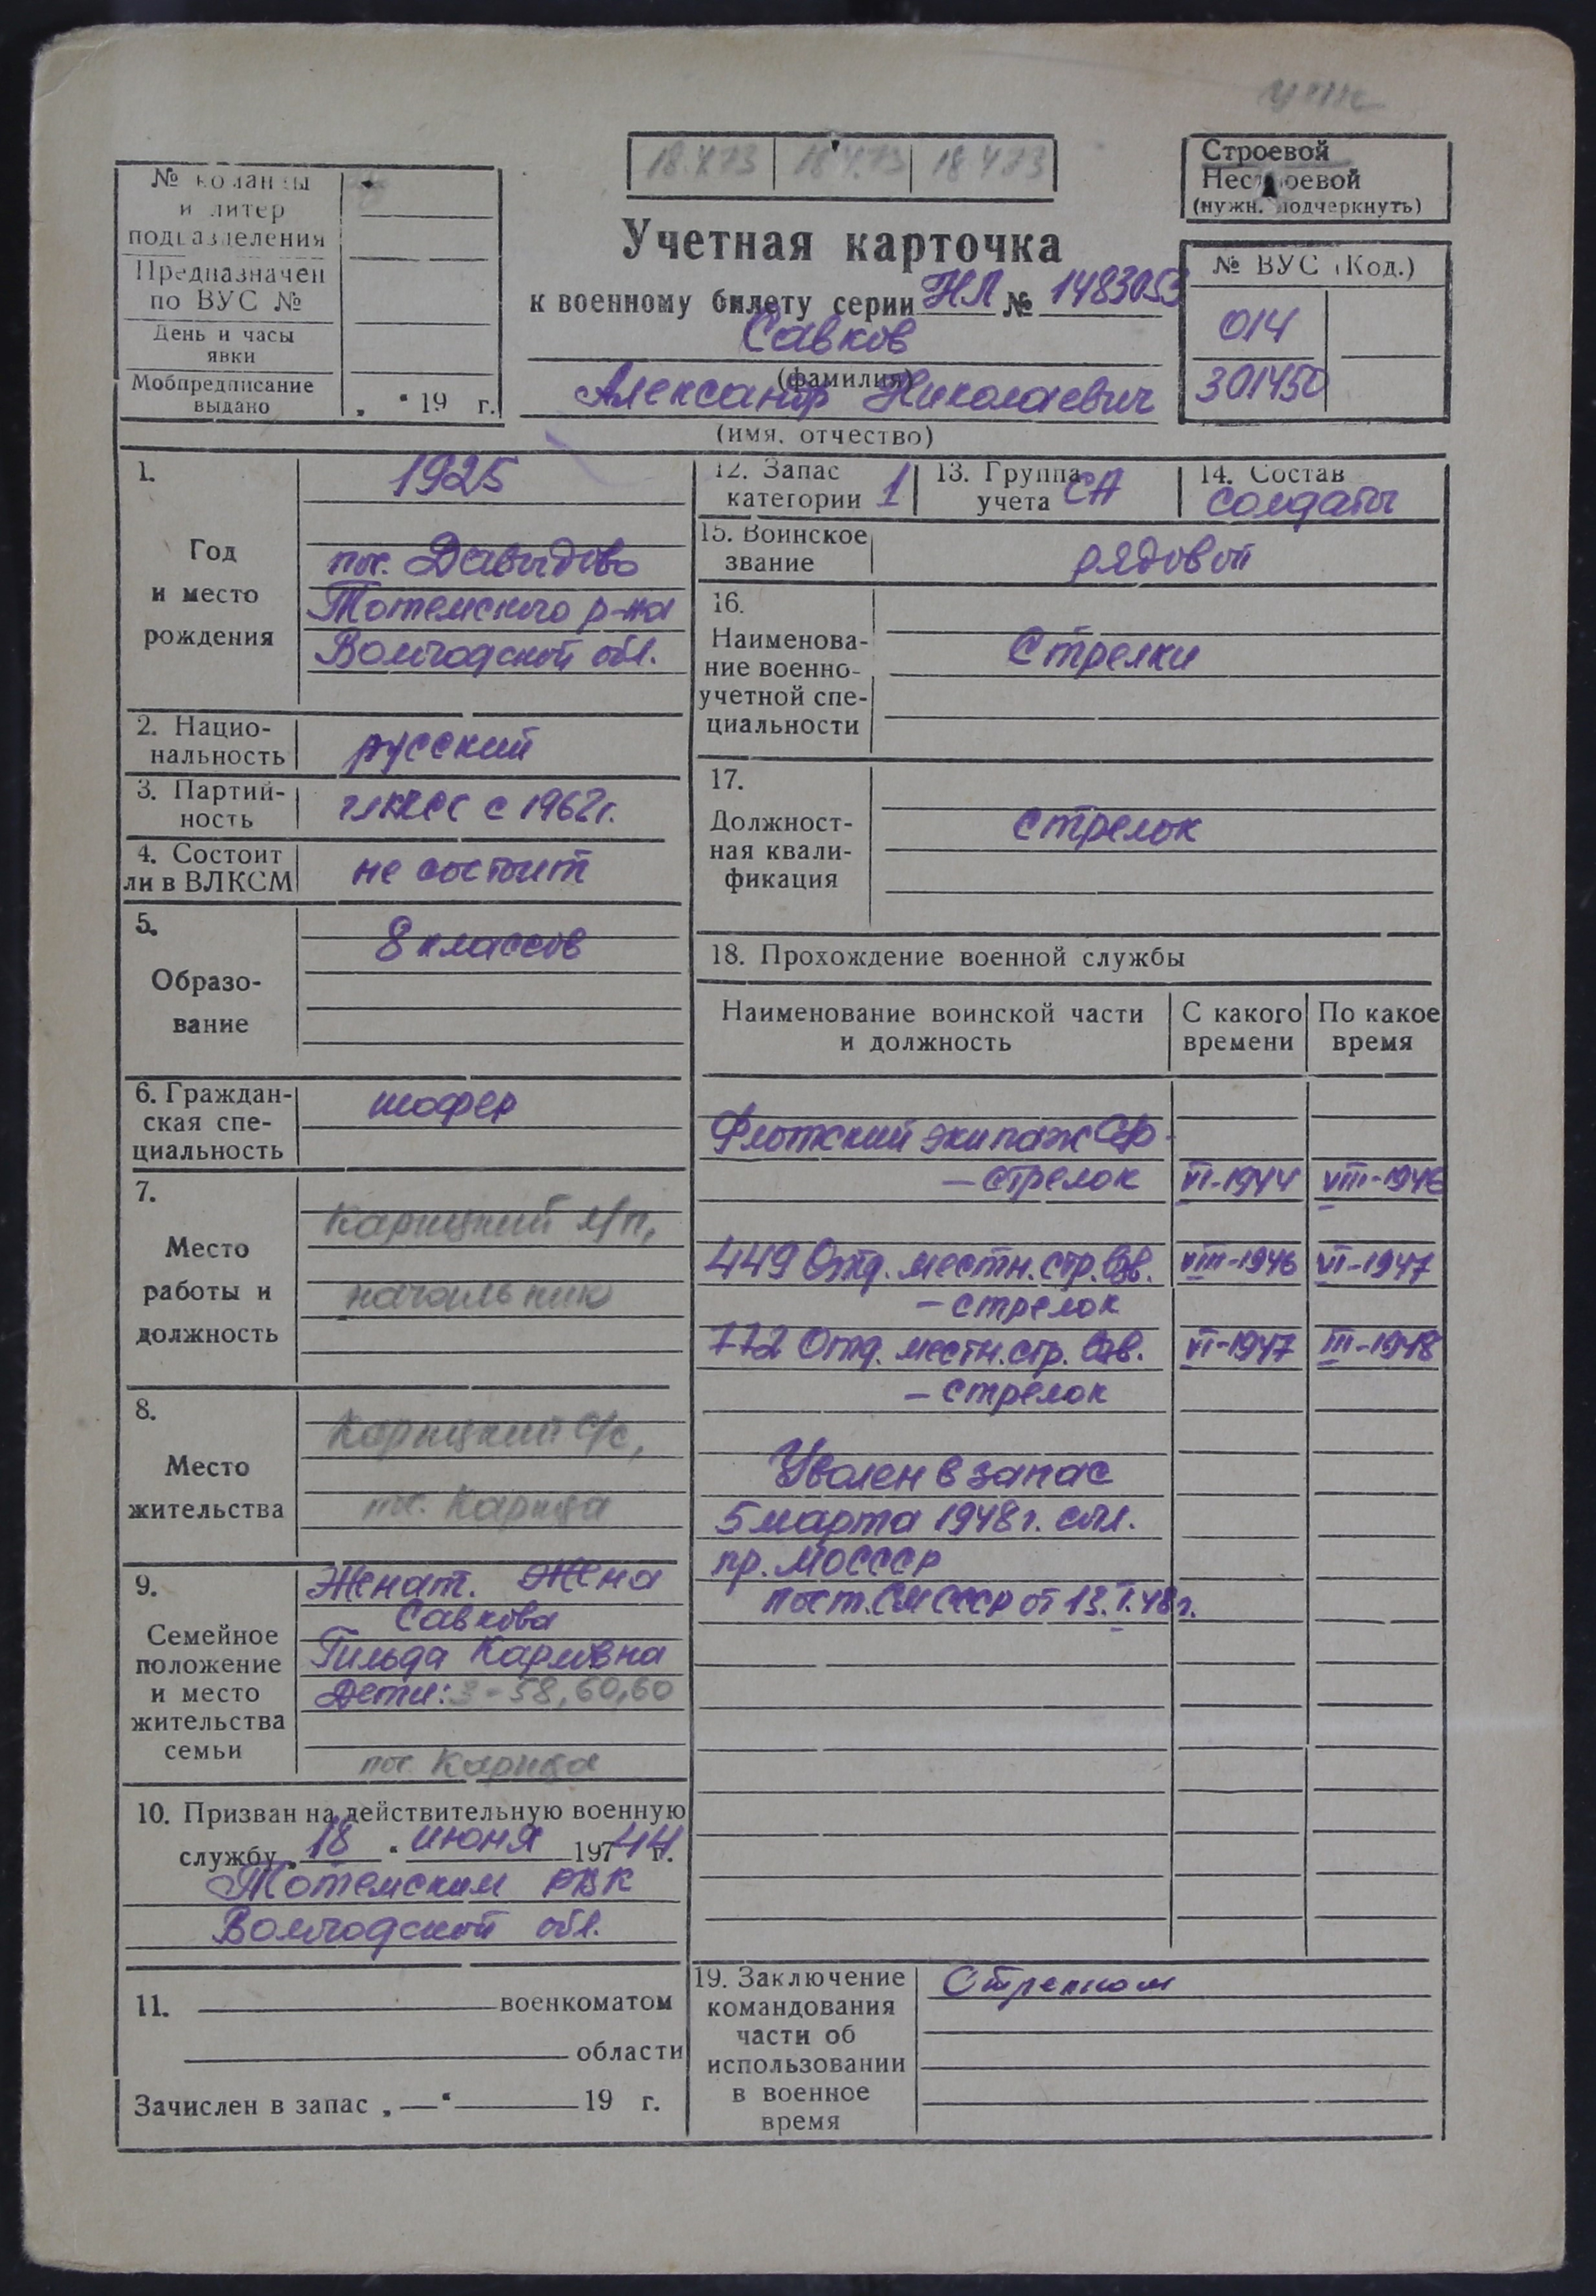 18.4.73 18.4.73 18.4.73
Строевой
Нестроевой
(нужн. подчеркнуть)
№ команды
и литер
подразделения
Предназначен
по ВУС №
День и часы
явки
Мобпредписание
выдано „ “ 19 г.
Учетная карточка
к военному билету серии НЛ № 1483053
Савков
(фамилия)
Александр Николаевич
(имя, отчество)
№ ВУС (Код.)
014
301450
1.
Год
и место
рождения
1925
пос. Давыдово
Тотемского р-на
Вологодской обл.
2. Нацио-
нальность
русский
3. Партий-
ность
чл КПСС с 1962г.
4. Состоит
ли в ВЛКСМ
не состоит
5.
Образо-
вание
8 классов
6. Граждан-
ская спе-
циальность
шофер
7.
Место
работы и
должность
Карицкий л/п,
начальник
8.
Место
жительства
Карицкий с/с,
пос. Карица
9.
Семейное
положение
и место
жительства
семьи
Женат. Жена
Савкова
Гильда Карловна
Дети: 3-58, 60, 60
пос. Карица
10. Призван на действительную военную
службу „ 18 “ июня 197 44 г.
Тотемским РВК
Вологодской обл.
11. военкоматом
области
Зачислен в запас „ — “ 19 г.
12. Запас
категории 1
13. Группа
учета СА
14. Состав
солдаты
15. Воинское
звание
рядовой
16.
Наименова-
ние военно-
учетной спе-
циальности
Стрелки
17.
Должност-
ная квали-
фикация
стрелок
18. Прохождение военной службы
Наименование воинской части
и должность
С какого
времени
По какое
время
Флотский экипаж СФ-
— стрелок VI-1944 VIII-1946
449 Отд. местн. стр. взв. VIII-1946 VI-1947
— стрелок
772 Отд. местн. стр. взв. VI-1947 III-1948
— стрелок
Уволен в запас
5 марта 1948г. согл.
пр. МО СССР
пост. СМ СССР от 13.I.48г.
19. Заключение
командования
части об
использовании
в военное
время
Стрелком